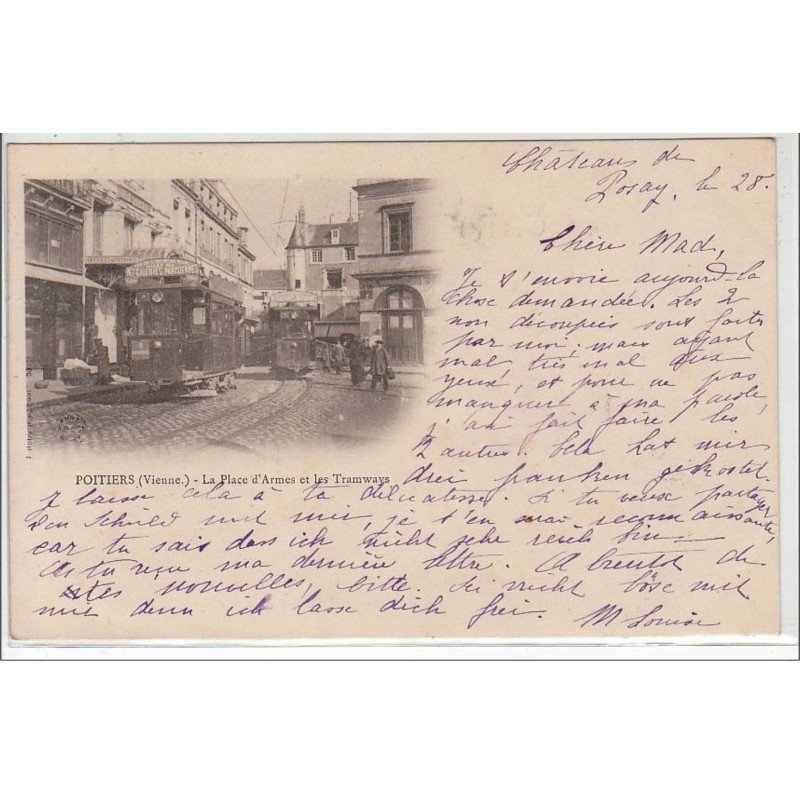 Château de
Rosay, le 28.
Chère Mad,
Je t'envoie aujourd-la
chose demandée. Les 2
non découpées sont faites
par moi, mais ayant
mal très mal aux
yeux, et pour ne pas
manquer à ma parole,
j'ai fait faire les
2 autres. Cela hat mir
drei franken gekostet.
Je laisse cela à ta délicatesse. Si tu veux partager
den Schuld mit mir, je t'en serai reconnaissante,
car tu sais dass ich nicht sehr reich bin.
As tu reçu ma dernière lettre. A bientôt de
tes nouvelles, bitte. Sei nicht böse mit
mir denn ich lasse dich frei.
M Louise
GALERIES PARISIENNES
POITIERS (Vienne.) - La Place d'Armes et les Tramways